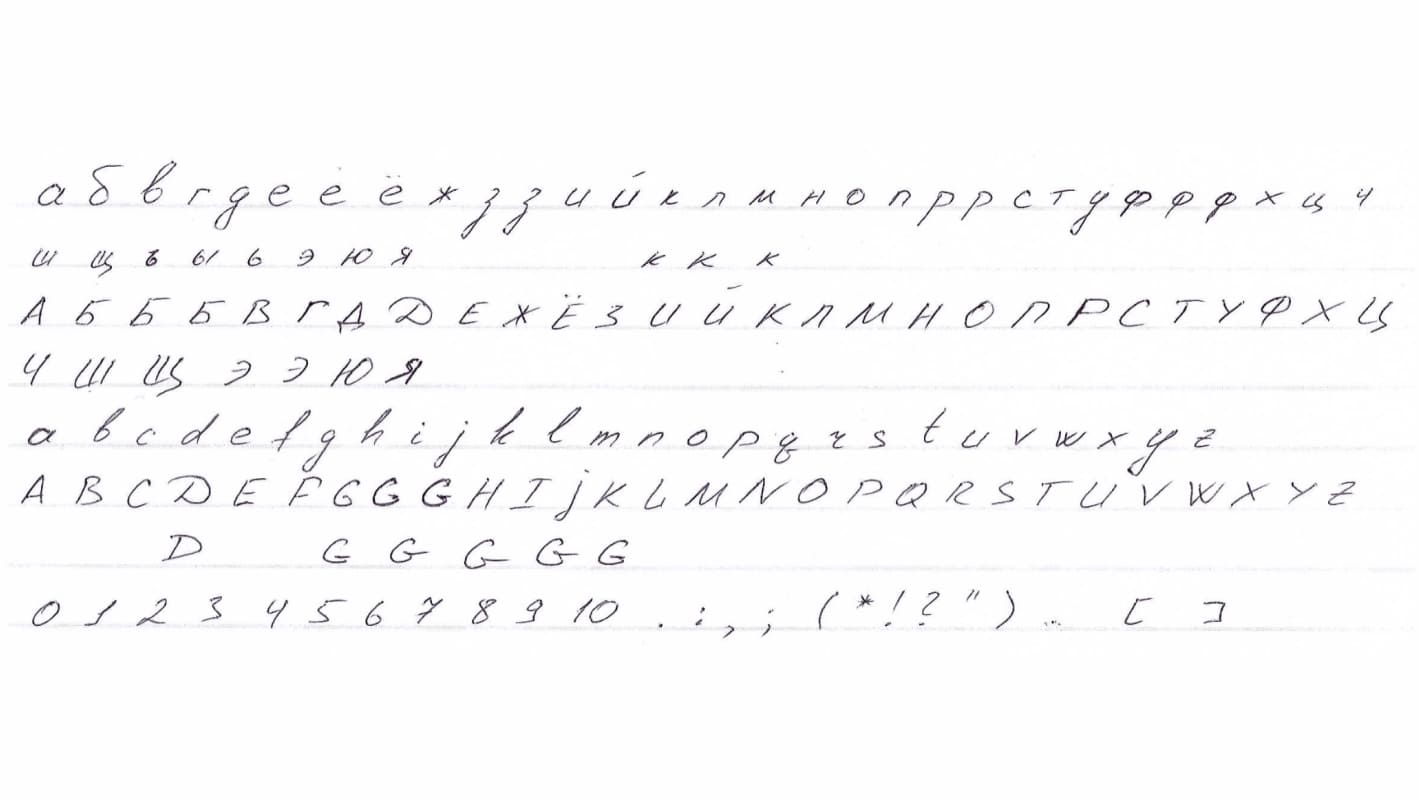 а б в г д е ё ё ж з з и й к л м н о п р р с т у ф ф ф х ц ч
ш щ ъ ы ь э ю я к к к
А Б Б Б В Г Д Д Е Ж Ё З И Й К Л М Н О П Р С Т У Ф Х Ц
Ч Ш Щ Э Э Ю Я
a b c d e f g h i j k l m n o p q r s t u v w x y z
A B C D E F G G G H I j K L M N O P Q R S T U V W X Y Z
D G G G G G
0 1 2 3 4 5 6 7 8 9 10 . : , ; ( * ! ? " ) .. [ ]